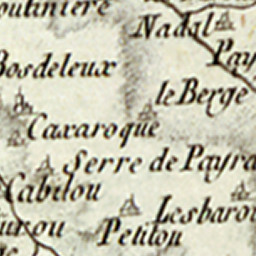 outiniere
Nadal
Pay
Bosdeleux
le Berge
Caxaroque
Serre de Payra
Cabilou
Lesbarou
urou
Petitou